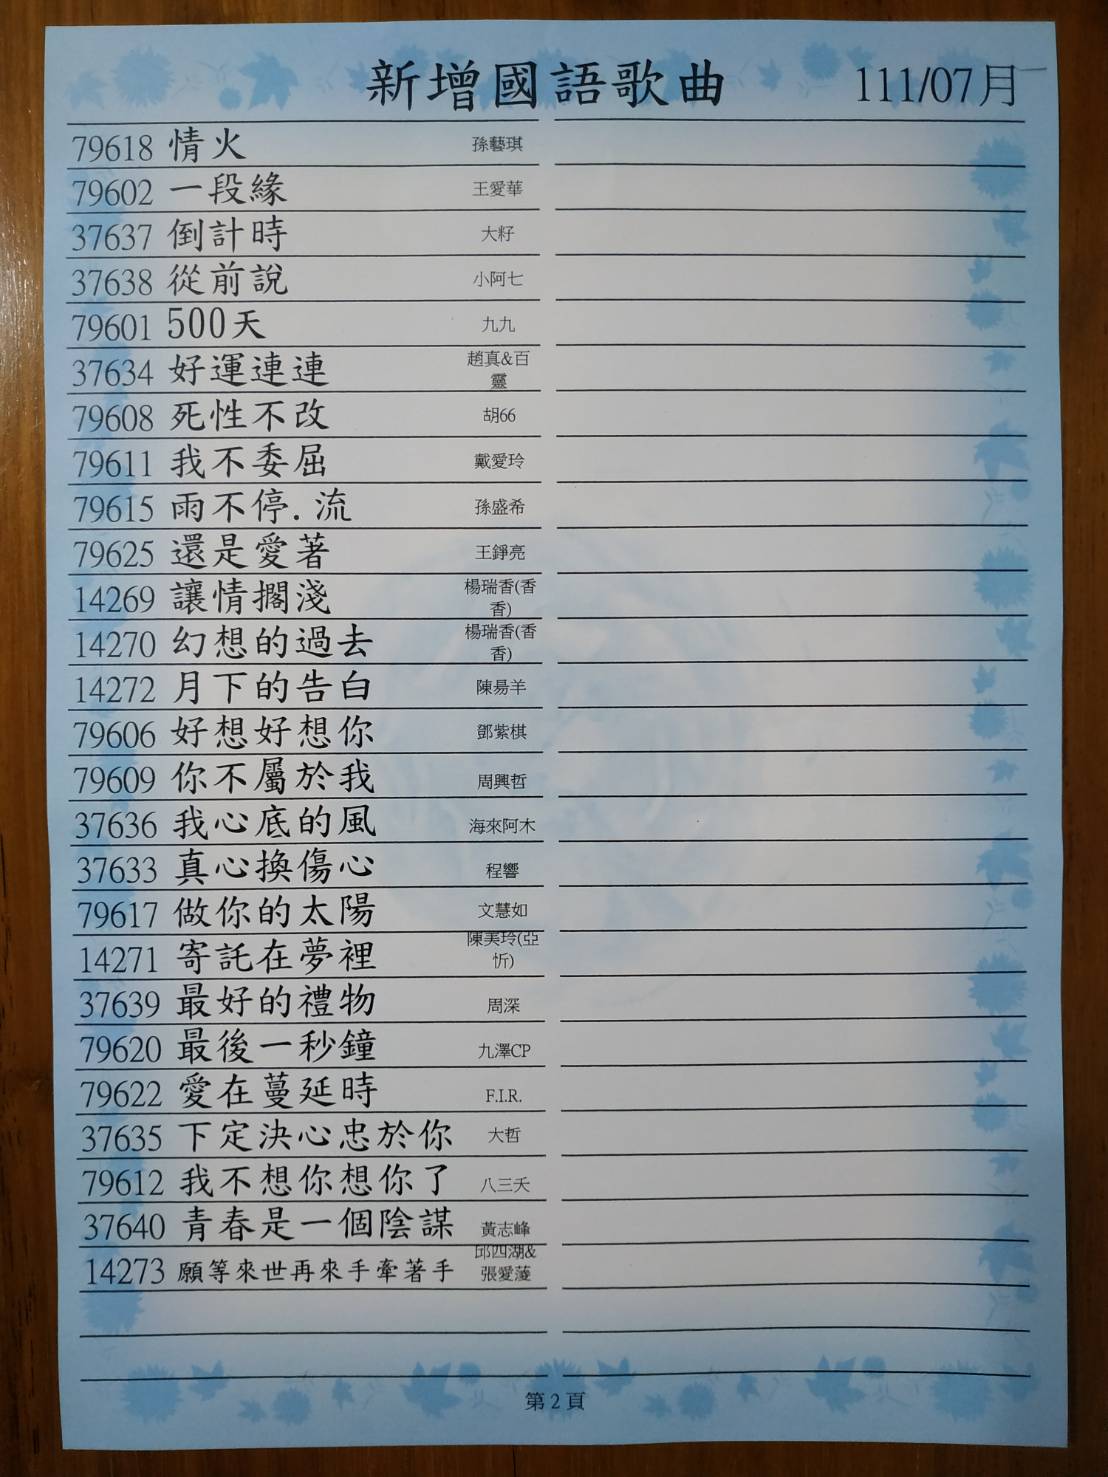 新增國語歌曲 111/07月
79618 情火 孫藝琪
79602 一段緣 王愛華
37637 倒計時 大籽
37638 從前說 小阿七
79601 500天 九九
37634 好運連連 趙真&百
靈
79608 死性不改 胡66
79611 我不委屈 戴愛玲
79615 雨不停.流 孫盛希
79625 還是愛著 王錚亮
14269 讓情擱淺 楊瑞香(香
香)
14270 幻想的過去 楊瑞香(香
香)
14272 月下的告白 陳昜羊
79606 好想好想你 鄧紫棋
79609 你不屬於我 周興哲
37636 我心底的風 海來阿木
37633 真心換傷心 程響
79617 做你的太陽 文慧如
14271 寄託在夢裡 陳美玲(亞
忻)
37639 最好的禮物 周深
79620 最後一秒鐘 九澤CP
79622 愛在蔓延時 F.I.R.
37635 下定決心忠於你 大哲
79612 我不想你想你了 八三夭
37640 青春是一個陰謀 黃志峰
14273 願等來世再來手牽著手 邱四湖&
張愛蓤
第 2 頁